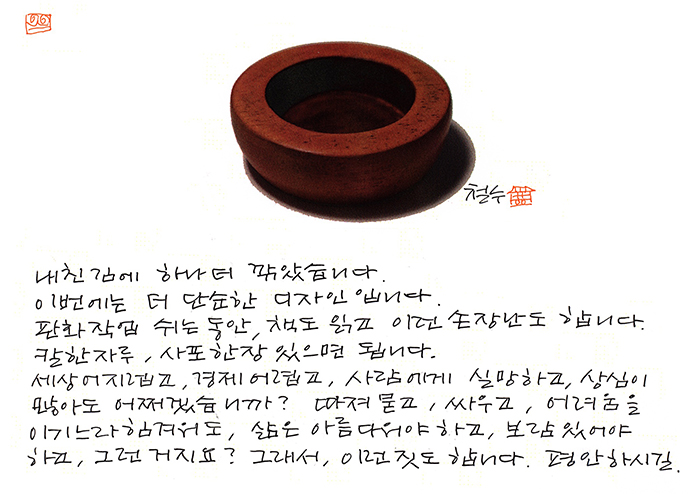 철수
내친김에 하나 더 깎았습니다.
이번에는 더 단순한 디자인입니다.
판화작업 쉬는 동안, 책도 읽고 이런 손장난도 합니다.
칼한자루, 사포한장 있으면 됩니다.
세상어지럽고, 경제어렵고, 사람에게 실망하고, 상심이
많아도 어쩌겠습니까? 따져묻고, 싸우고, 어려움을
이기느라힘겨워도, 삶은 아름다워야 하고, 보람있어야
하고, 그런거지요? 그래서, 이런짓도 합니다. 평안하시길.